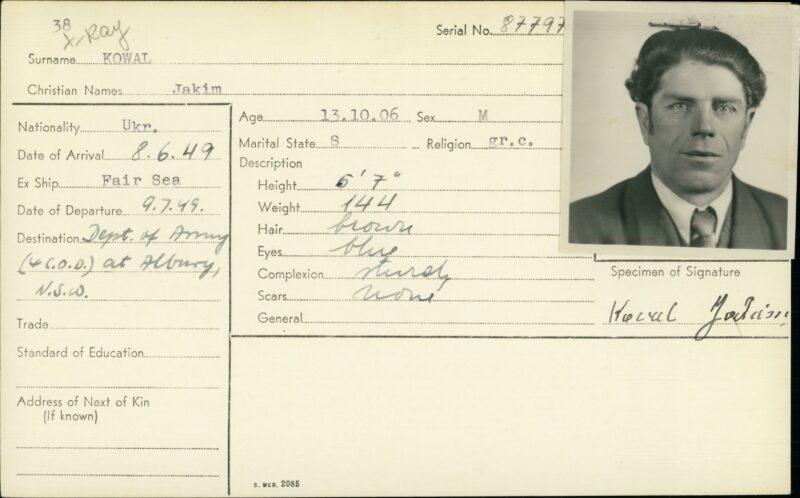 38
X-Ray
Serial No. 87797
Surname KOWAL
Christian Names Jakim
Nationality Ukr.
Date of Arrival 8.6.49
Ex Ship Fair Sea
Date of Departure 9.7.49.
Destination Dept. of Army
(4 C.O.D.) at Albury,
N.S.W.
Trade
Standard of Education
Address of Next of Kin
(If known)
Age 13.10.06 Sex M
Marital State S Religion gr.c.
Description
Height 5'7"
Weight 144
Hair brown
Eyes blue
Complexion sturdy
Scars none
General
Specimen of Signature
Kowal Jakim
S. MCD. 2085